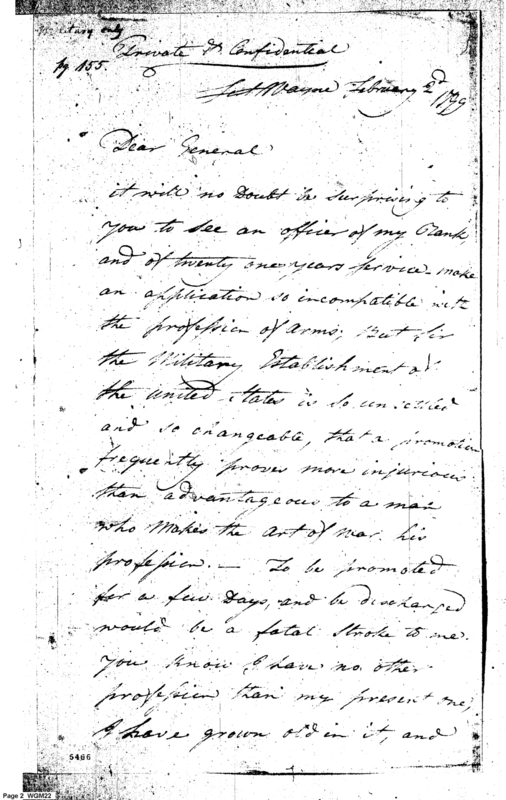 Military only
pg 155.
Private & Confidential
Fort Wayne February 2d 1799
Dear General
it will no Doubt be surprising to
you to see an officer of my Rank,
and of twenty one years Service make
an application so incompatible with
the profession of Arms; But Sir
the Military Establishment of
the united States is so unsettled
and so changeable, that a promotion
frequently proves more injurious
than advantageous to a man
who Makes the Art of War his
profession. — To be promoted
for a few Days, and be discharged
would be a fatal Stroke to me.
you Know I have no other
profession than my present one,
I have grown old in it, and
5466
Page 2_WGM22